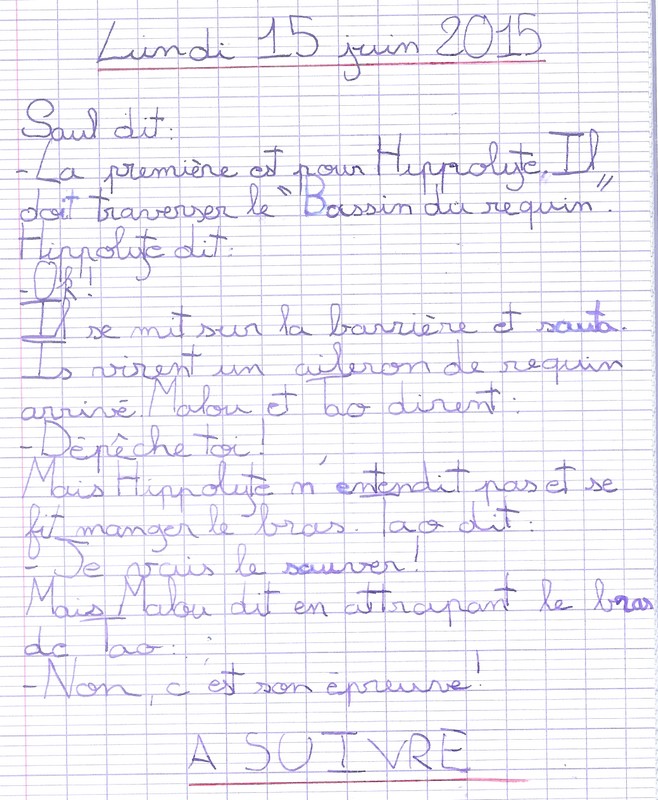 Lundi 15 juin 2015
Saul dit:
-La première est pour Hippolyte. Il
doit traverser le "Bassin du requin".
Hippolyte dit:
-Ok!
Il se mit sur la barrière et sauta.
Is virent un aileron de requin
arrivé. Malou et Tao dirent:
-Dépêche toi!
Mais Hippolyte n'entendit pas et se
fit manger le bras. Tao dit:
- Je vais le sauver!
Mais Malou dit en attrapant le bras
de Tao:
-Non, c'est son épreuve!
A SUIVRE